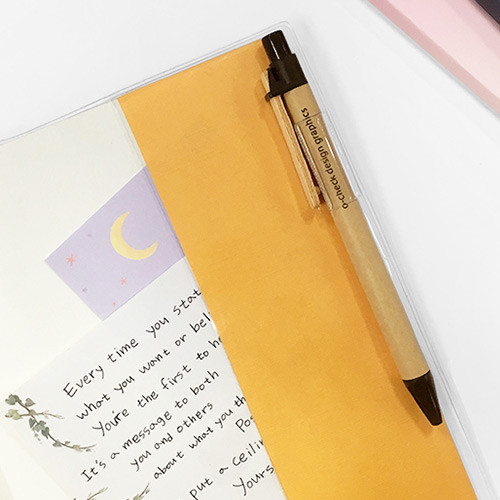 o-check design graphics
Every time you
what you want or
You're the first to
It's a message to both
you and others
about what you
put a